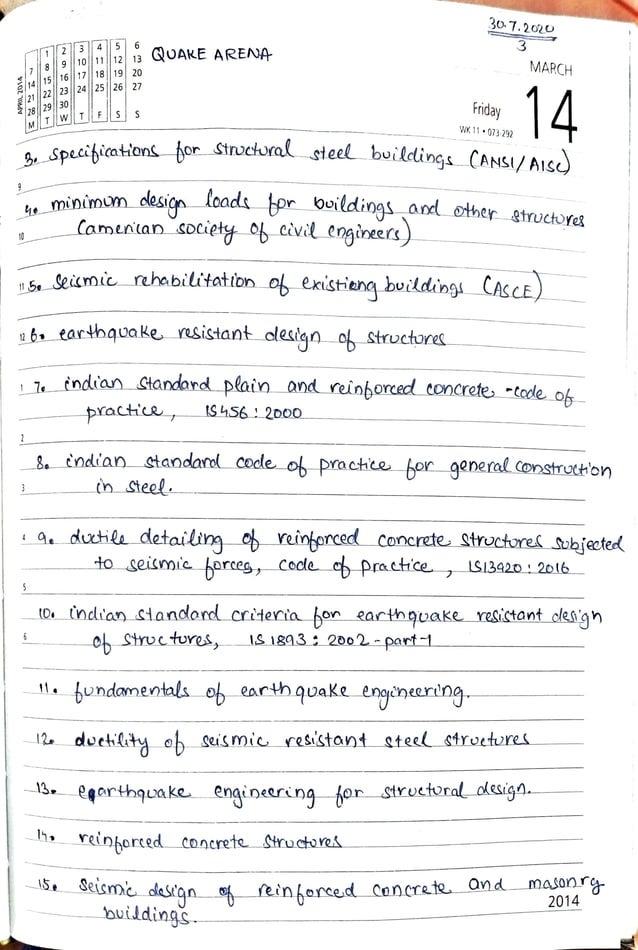 30.7.2020
3
QUAKE ARENA
MARCH
Friday
14
WK 11 • 073-292
APRIL 2014
1 2 3 4 5 6
7 8 9 10 11 12 13
14 15 16 17 18 19 20
21 22 23 24 25 26 27
28 29 30
M T W T F S S
3. specifications for structural steel buildings (ANSI/AISC)
9
4. minimum design loads for buildings and other structures
10 (american society of civil engineers)
11 5. seismic rehabilitation of existieng buildings (ASCE)
12 6. earthquake resistant design of structures
1 7. indian standard plain and reinforced concrete -code of
practice, IS456:2000
2
8. indian standard code of practice for general construction
3 in steel.
4 9. ductile detailing of reinforced concrete structures subjected
to seismic forces, code of practice, IS13920:2016
5
10. indian standard criteria for earthquake resistant design
6 of structures, IS 1893:2002-part-1
11. fundamentals of earthquake engineering.
12. ductility of seismic resistant steel structures
13. earthquake engineering for structural design.
14. reinforced concrete structures
15. seismic design of reinforced concrete and masonry
2014
buildings.